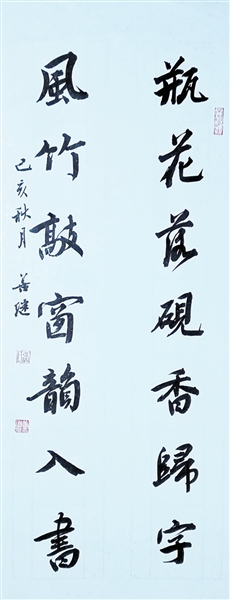 瓶花落硯香歸字
風竹敲窗韻入書
己亥秋月 善継